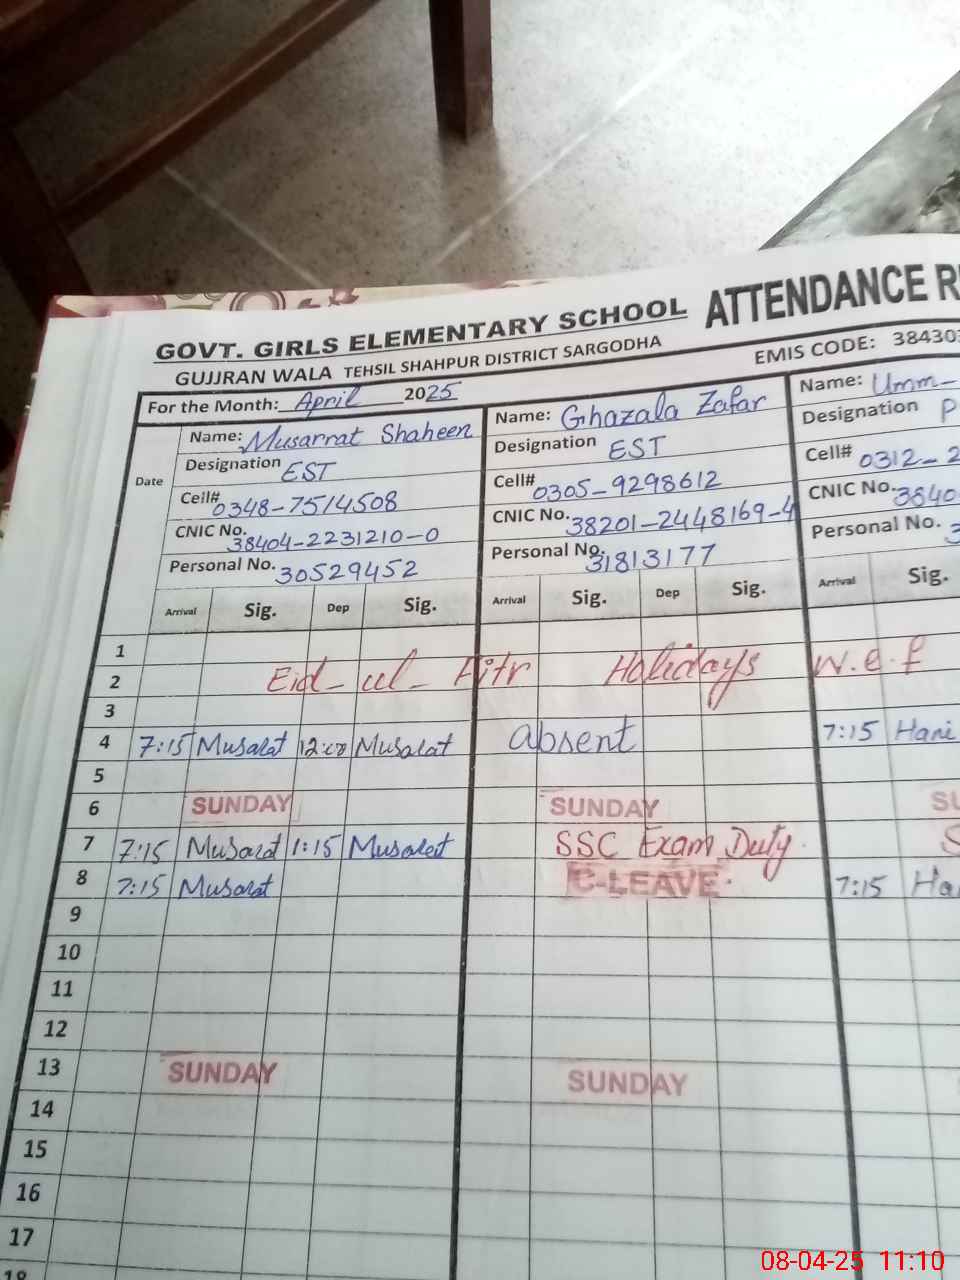 GOVT. GIRLS ELEMENTARY SCHOOL ATTENDANCE
GUJJRAN WALA TEHSIL SHAHPUR DISTRICT SARGODHA EMIS CODE: 38430
For the Month: April 2025
Date
Name: Musarrat Shaheen
Designation EST
Cell# 0348-7514508
CNIC No. 38404-2231210-0
Personal No. 30529452
Arrival Sig. Dep Sig.
Name: Ghazala Zafar
Designation EST
Cell# 0305-9298612
CNIC No. 38201-2448169-4
Personal No. 31813177
Arrival Sig. Dep Sig.
Name: Umm-
Designation P
Cell# 0312-2
CNIC No. 3840
Personal No. 3
Arrival Sig.
1
2 Eid-ul-Fitr Holidays w.e.f
3
4 7:15 Musarat Musarat absent 7:15 Hani
5
6 SUNDAY SUNDAY SU
7 7:15 Musarat 1:15 Musarat SSC Exam Duty. S
8 7:15 Musarat C-LEAVE. 7:15 Ha
9
10
11
12
13 SUNDAY SUNDAY
14
15
16
17
18
08-04-25 11:10